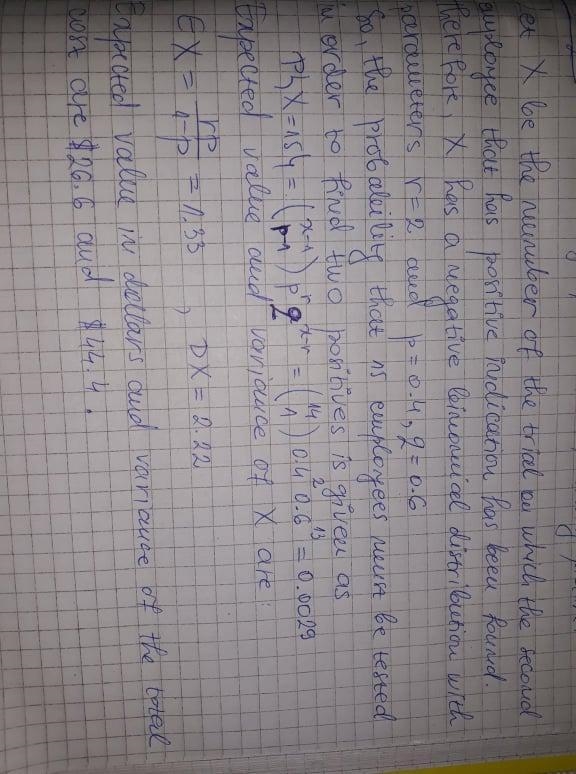 Let X be the number of the trial on which the second
employee that has positive indication has been found.
therefore, X has a negative binomial distribution with
parameters r=2 and p=0.4, q=0.6
So, the probability that 15 employees must be tested
in order to find two positives is given as
P{X=15} = (x-1 p-1) p^r q^x-r = (14 1) 0.4^2 0.6^13 = 0.0029
Expected value and variance of X are:
EX = rp/1-p = 1.33 , DX = 2.22
Expected value in dollars and variance of the total
cost are $26.6 and $44.4.